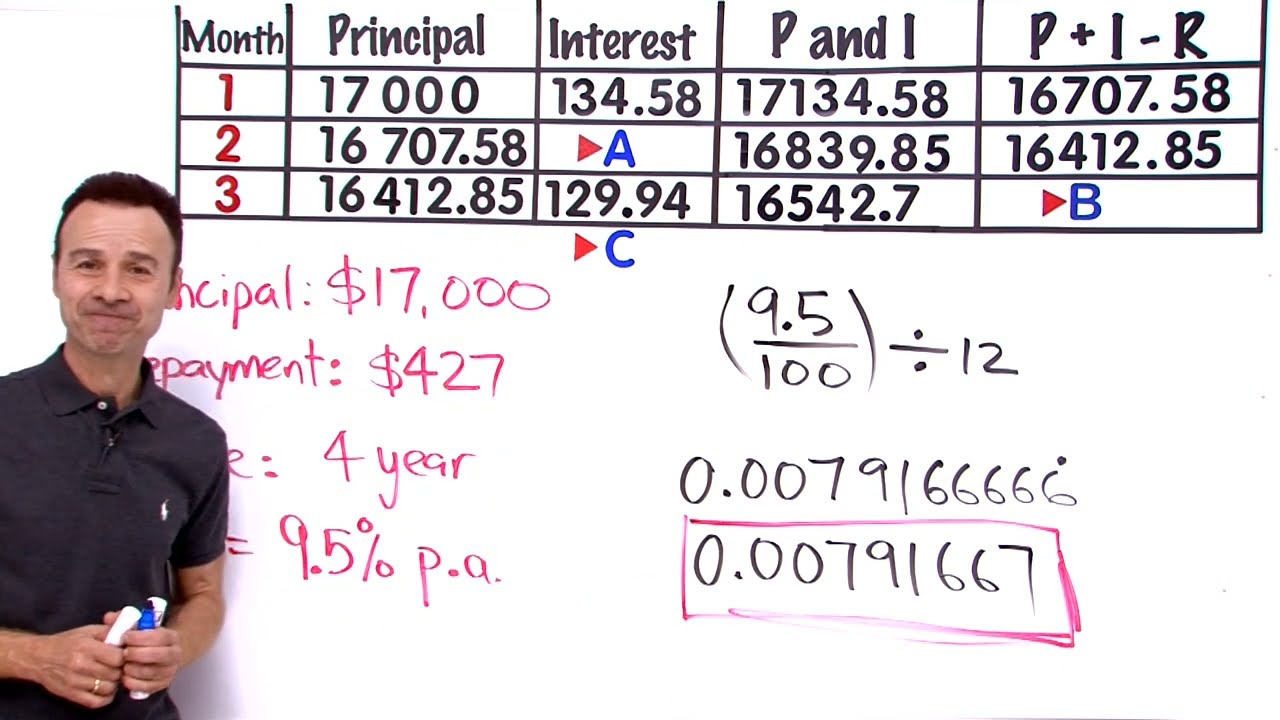 Month Principal Interest P and I P + I - R
1 17 000 134.58 17134.58 16707.58
2 16 707.58 A 16839.85 16412.85
3 16412.85 129.94 16542.7 B
C
ncipal: $17,000
epayment: $427
e: 4 year
= 9.5% p.a.
(9.5/100) ÷ 12
0.0079166666̇
0.00791667